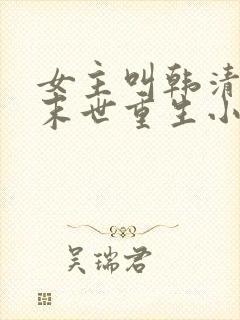 女主叫韩清
末世重生小
吴瑞君